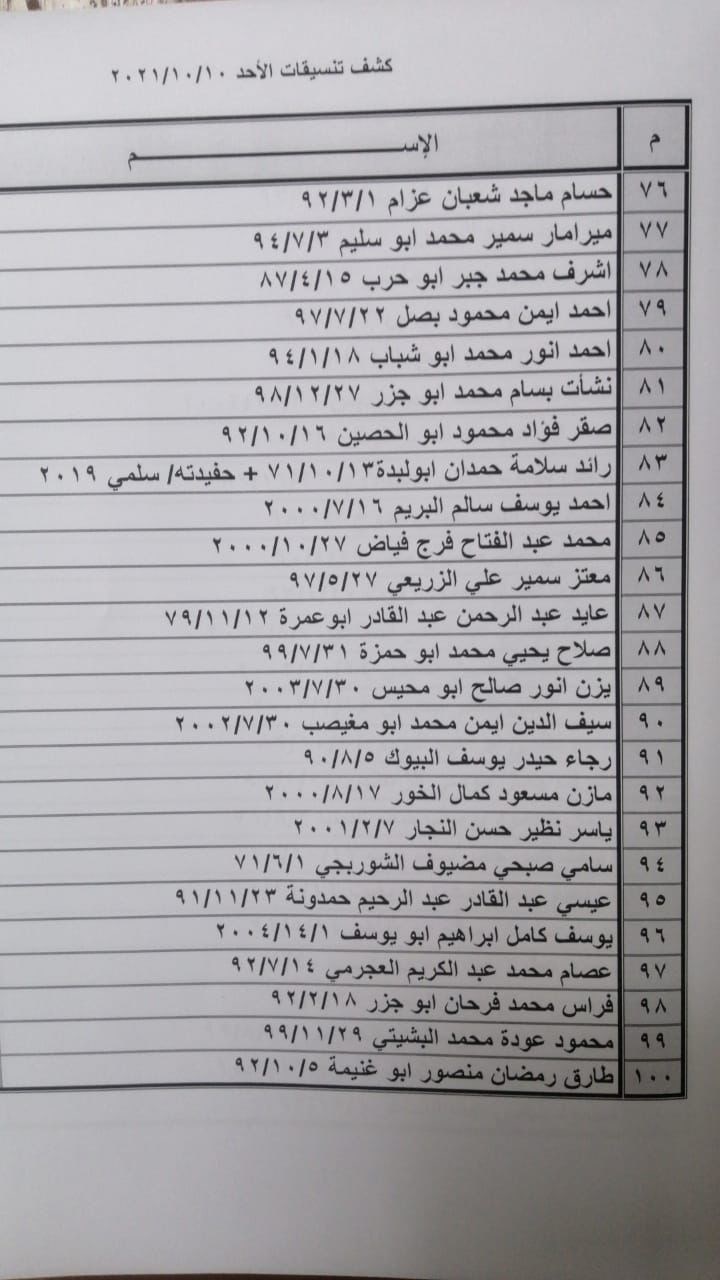 كشف تنسيقات الأحد ٢٠٢١/١٠/١٠
م الإســـــــــــم
٧٦ حسام ماجد شعبان عزام ٩٢/٣/١
٧٧ ميرامار سمير محمد ابو سليم ٩٤/٧/٣
٧٨ اشرف محمد جبر ابو حرب ٨٧/٤/١٥
٧٩ احمد ايمن محمود بصل ٩٧/٧/٢٢
٨٠ احمد انور محمد ابو شباب ٩٤/١/١٨
٨١ نشأت بسام محمد ابو جزر ٩٨/١٢/٢٧
٨٢ صقر فؤاد محمود ابو الحصين ٩٢/١٠/١٦
٨٣ رائد سلامة حمدان ابولبدة٧١/١٠/١٣ + حفيدته/ سلمي ٢٠١٩
٨٤ احمد يوسف سالم البريم ٢٠٠٠/٧/١٦
٨٥ محمد عبد الفتاح فرج فياض ٢٠٠٠/١٠/٢٧
٨٦ معتز سمير علي الزريعي ٩٧/٥/٢٧
٨٧ عايد عبد الرحمن عبد القادر ابوعمرة ٧٩/١١/١٢
٨٨ صلاح يحيي محمد ابو حمزة ٩٩/٧/٣١
٨٩ يزن انور صالح ابو محيس ٢٠٠٣/٧/٣٠
٩٠ سيف الدين ايمن محمد ابو مغيصب ٢٠٠٢/٧/٣٠
٩١ رجاء حيدر يوسف البيوك ٩٠/٨/٥
٩٢ مازن مسعود كمال الخور ٢٠٠٠/٨/١٧
٩٣ ياسر نظير حسن النجار ٢٠٠١/٢/٧
٩٤ سامي صبحي مضيوف الشوربجي ٧١/٦/١
٩٥ عيسي عبد القادر عبد الرحيم حمدونة ٩١/١١/٢٣
٩٦ يوسف كامل ابراهيم ابو يوسف ٢٠٠٤/١٤/١
٩٧ عصام محمد عبد الكريم العجرمي ٩٢/٧/١٤
٩٨ فراس محمد فرحان ابو جزر ٩٢/٢/١٨
٩٩ محمود عودة محمد البشيتي ٩٩/١١/٢٩
١٠٠ طارق رمضان منصور ابو غنيمة ٩٢/١٠/٥